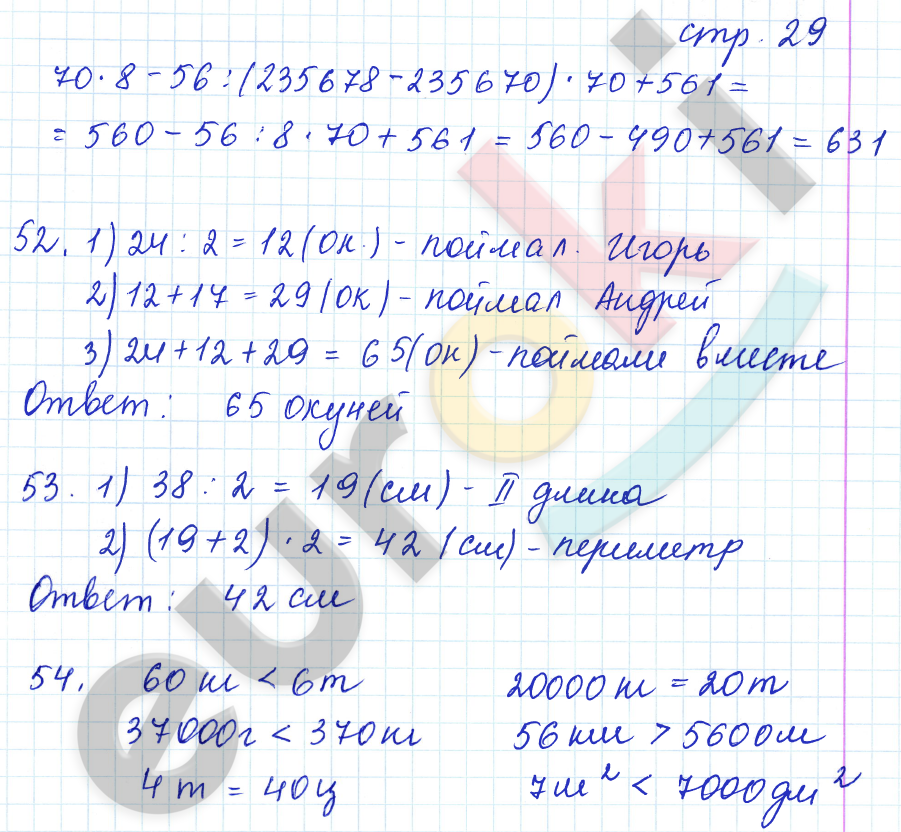 стр. 29
70·8-56:(235678-235670)·70+561=
=560-56:8·70+561=560-490+561=631
52. 1) 24:2=12(ок.)- поймал. Игорь
2) 12+17=29(ок)- поймал Андрей
3) 24+12+29=65(ок)-поймали вместе
Ответ: 65 окуней
53. 1) 38:2=19(см)- II длина
2) (19+2)·2=42(см)-периметр
Ответ: 42 см
54. 60кг < 6т 20000кг = 20т
37000г < 370кг 56км > 5600м
4т = 40ц 7м² < 7000дм²
euroki